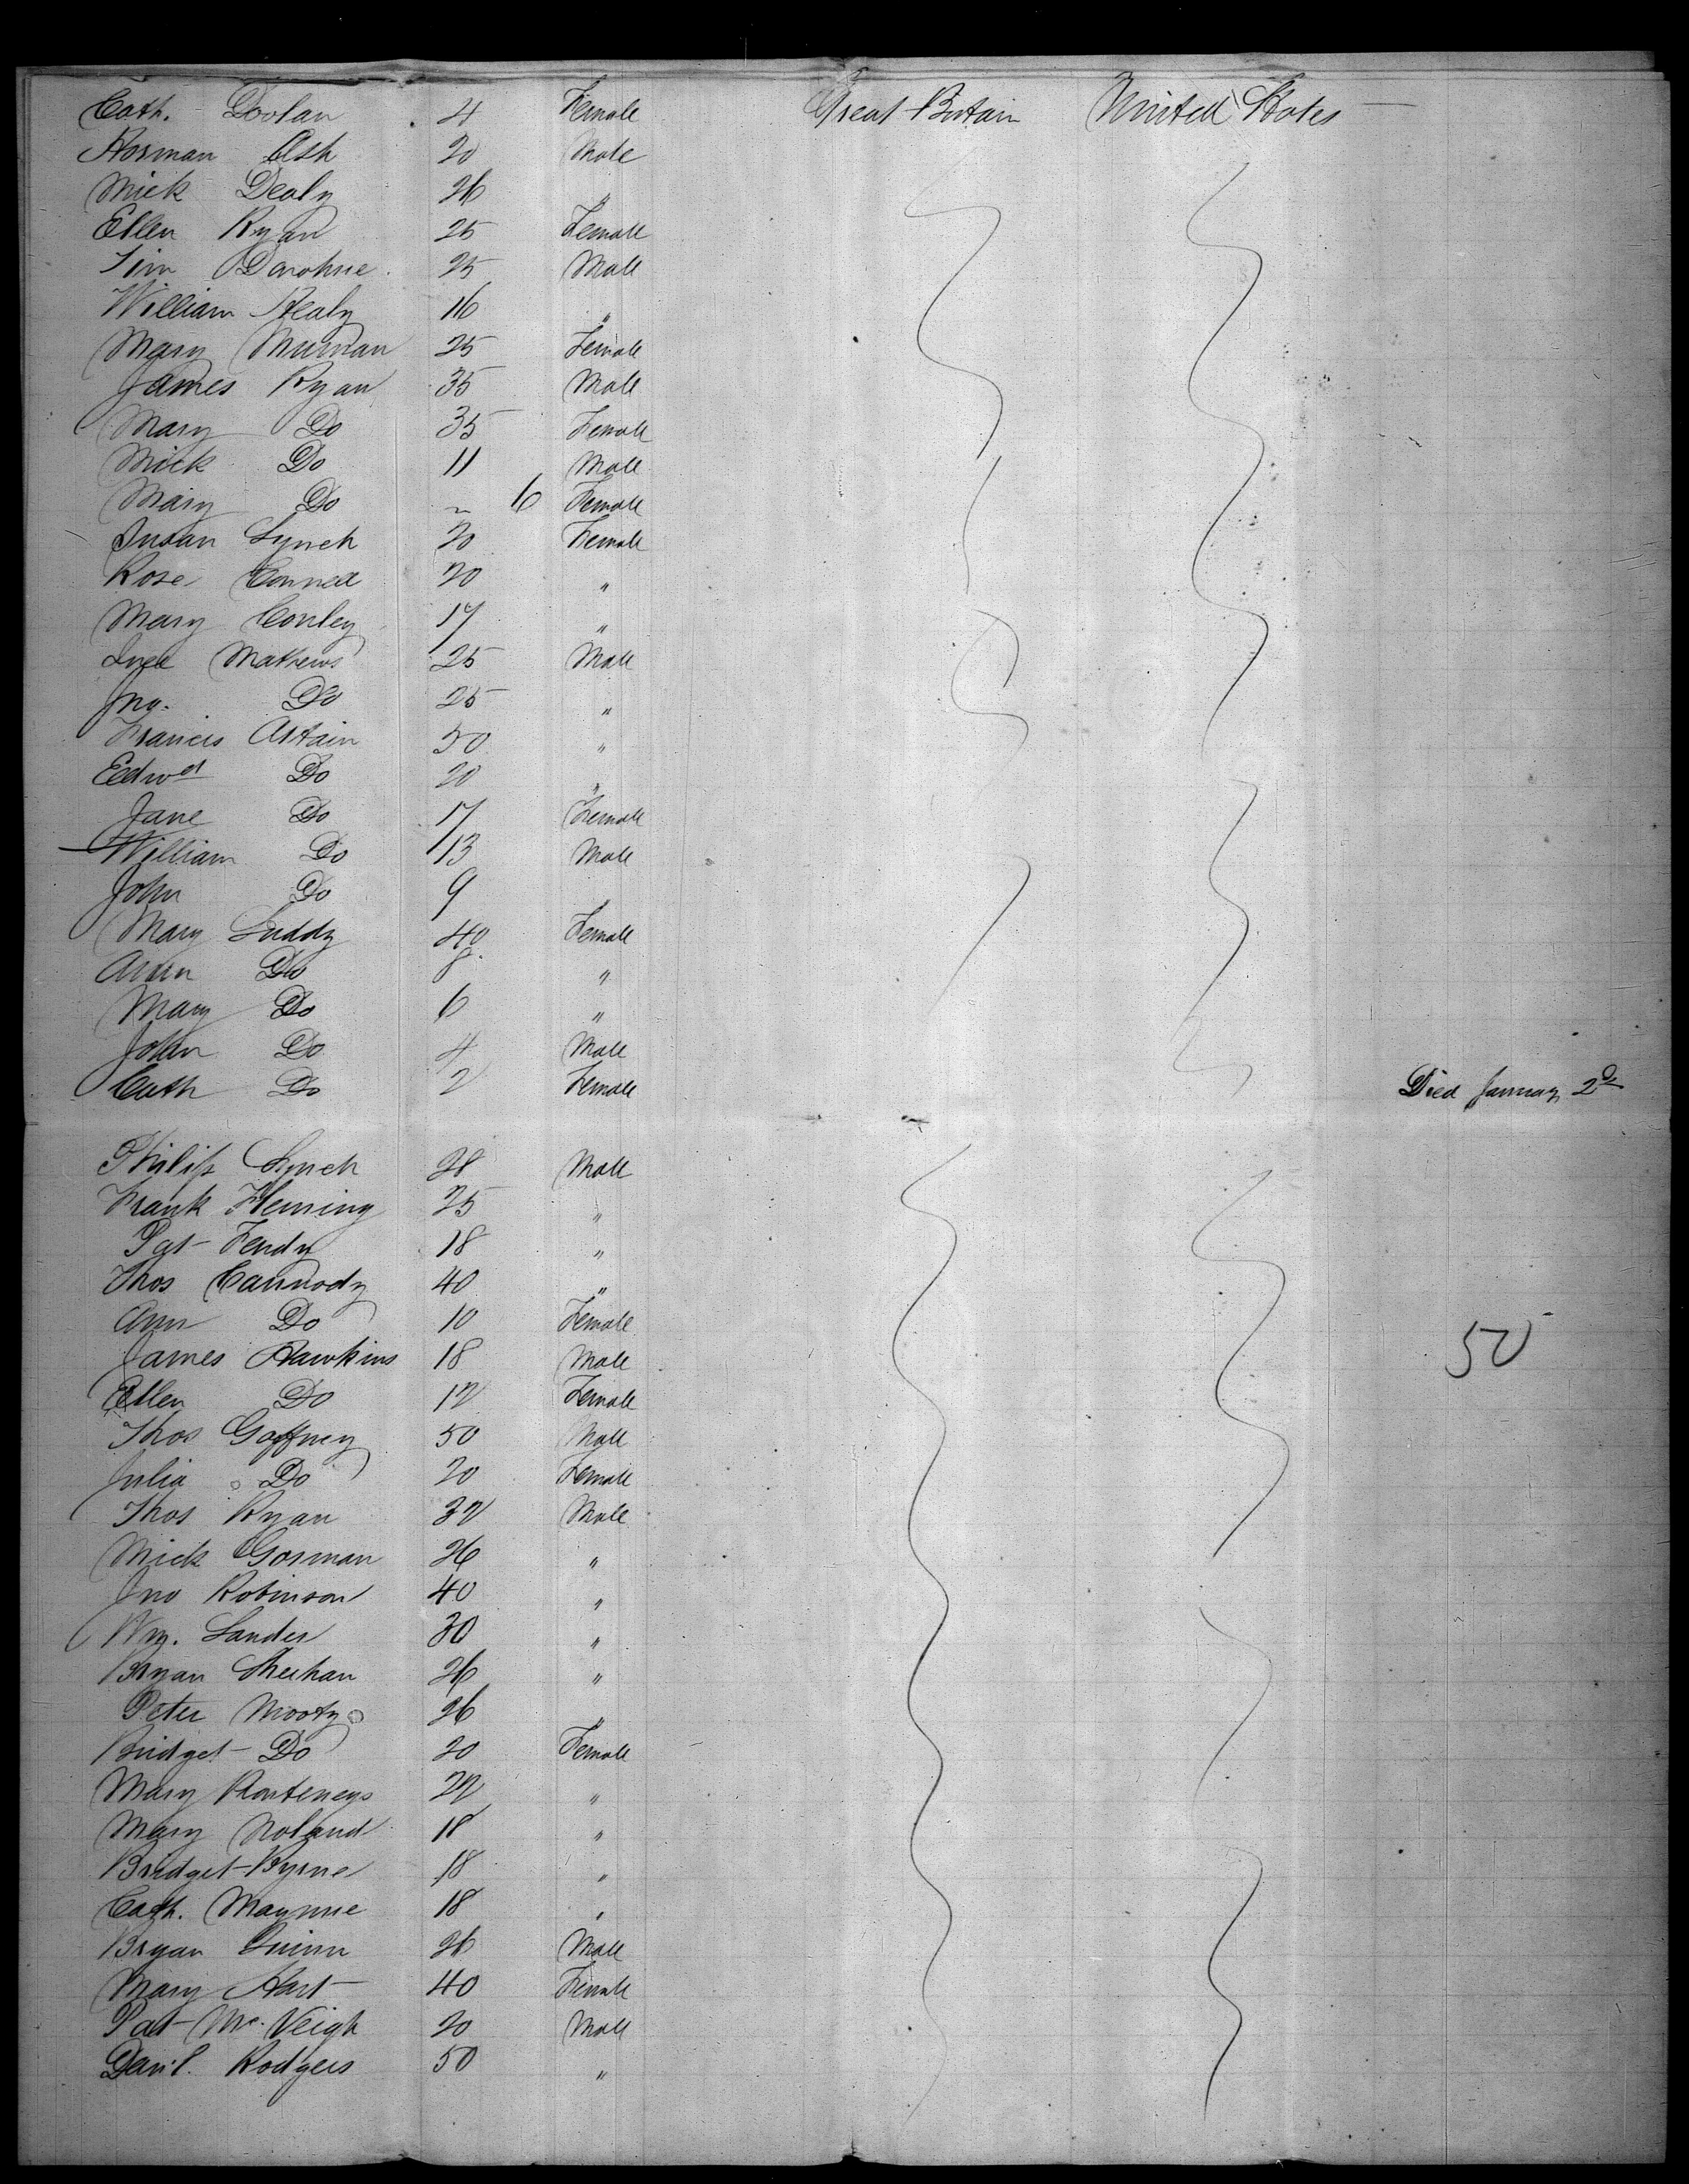 Cath. Doolan 4 Female Great Britain United States
Norman Ash 20 Male
Mick Dealy 26 "
Ellen Ryan 25 Female
Tim Donohue 25 Male
William Healy 16 "
Mary Murnan 25 Female
James Ryan 35 Male
Mary Do 35 Female
Mick Do 11 Male
Mary Do " 6 Female
Susan Lynch 20 Female
Rose Connell 20 "
Mary Conley 17 "
Mathews 25 Male
Jno. Do 25 "
Francis Astain 50 "
Edwd Do 20 "
Jane Do 17 Female
William Do 13 Male
John Do 9 "
Mary Luddy 40 Female
Ann Do 8 "
Mary Do 6 "
John Do 4 Male
Cath Do 2 Female Died January 2d
Philip Lynch 28 Male
Frank Fleming 25 "
Pat Fendy 18 "
Thos Carmody 40 "
Ann Do 10 Female
James Hawkins 18 Male 50
Ellen Do 12 Female
Thos Gaffney 50 Male
Julia Do 20 Female
Thos Ryan 32 Male
Mick Gorman 26 "
Jno Robinson 40 "
Wm. Lander 30 "
Bryan Sheehan 26 "
Peter Mooty 26 "
Bridget Do 20 Female
Mary 22 "
Mary Noland 18 "
Bridget Byrne 18 "
Cath. Maynne 18 "
Bryan Quinn 26 Male
Mary Hart 40 Female
Pat Mc. Veigh 20 Male
Danl. Rodgers 50 "